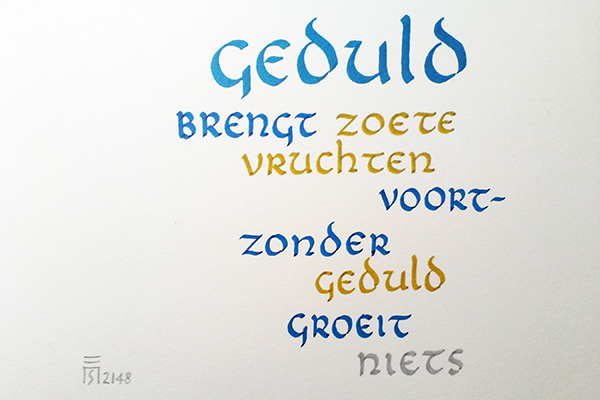 Geduld
brengt zoete
vruchten
voort-
zonder
geduld
groeit
niets
2148